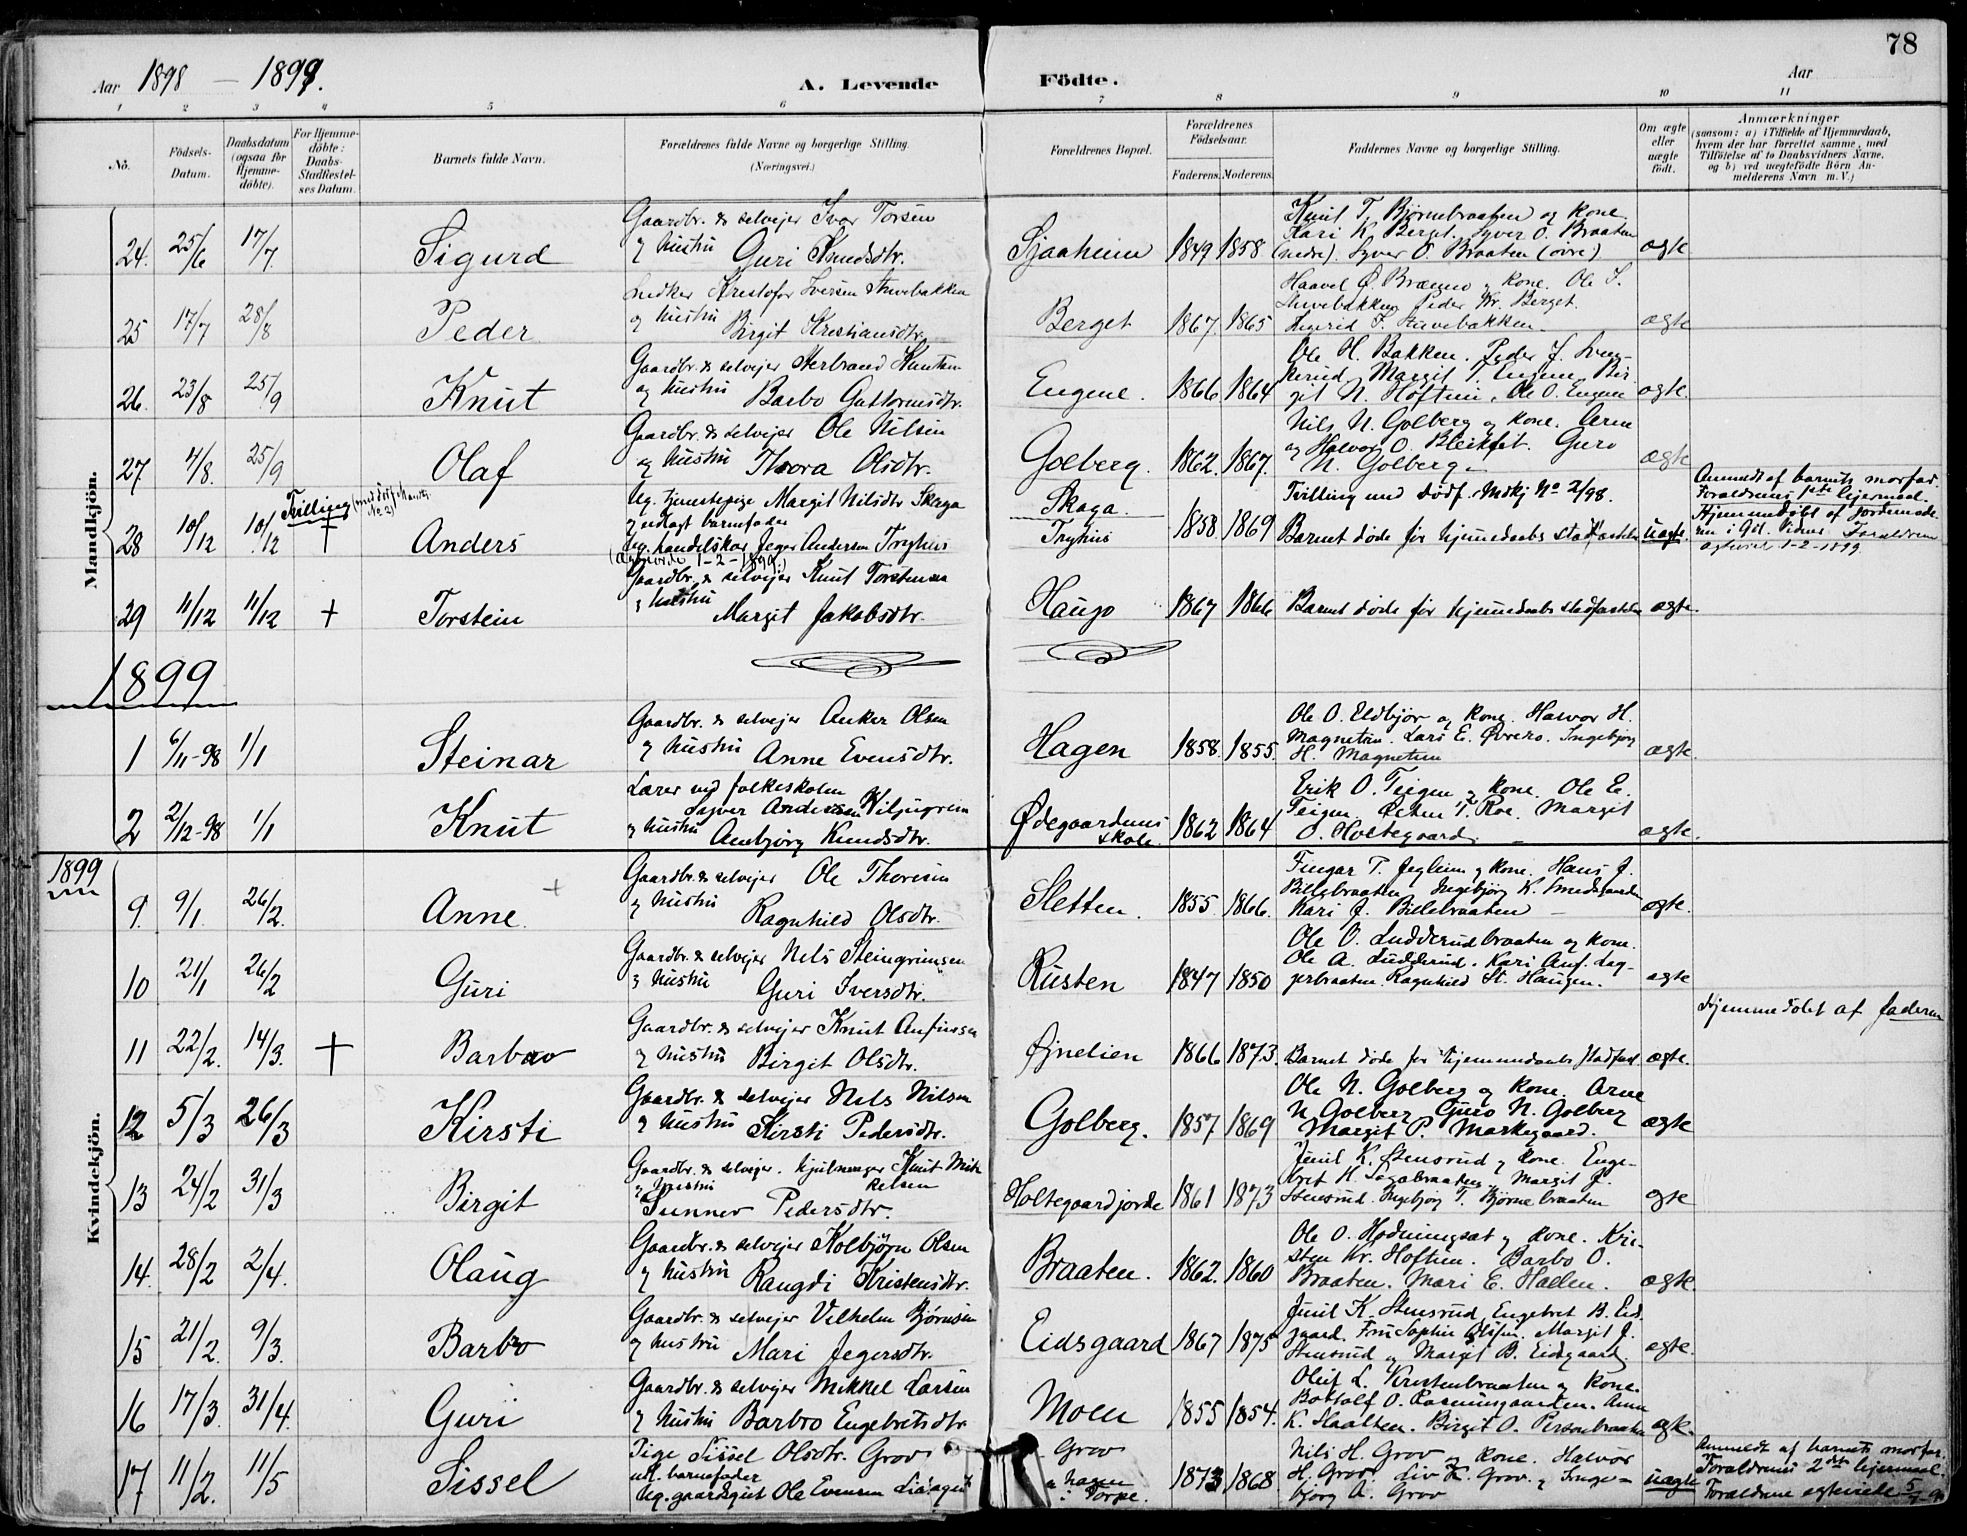 78
Aar 1898 – 1899. A. Levende Födte. Aar
1 2 3 4 5 6 7 8 9 10 11
Nö. Födsels-Datum. Daabsdatum (ogsaa for Hjemme-döbte). For Hjemme-döbte: Daabs-Stadfæstel-ses Datum. Barnets fulde Navn. Forældrenes fulde Navne og borgerlige Stilling. (Næringsvei.) Forældrenes Bopæl. Forældrenes Födselsaar. Faderens. Moderens. Faddernes Navne og borgerlige Stilling. Om ægte eller uægte födt. Anmærkninger (saasom: a) i Tilfælde af Hjemmedaab, hvem der har forrettet samme, med Tilföielse af to Daabsvidners Navne, og b) ved uægtefödte Börn An-melderens Navn m. V.)
Mandkjön.
Gaardbr. & selvejer Ivar Torsen
Knut T. Bjørnebraaten og kone.
24. 25/6 17/7. Sigurd og hustru Guri Knudsdtr. Sjaaheim 1849 1858 Kari K. Berget. Syver O. Braaten
(nedre). Syver O. Braaten (øvre) ægte
Kristofer Iversen
Haavel Ø. Brænno og kone. Ole I.
25 17/7 28/8 Peder og hustru Birgit Kristiansdtr. Berget 1867. 1865 Peder Kr. Berget.
ægte
Gaardbr. & selvejer Herbrand Knutsen
Ole H. Bakken. Peder J.
26. 23/8 25/9 Knut og hustru Barbo Guttormsdtr. Eugene. 1866 1864 Margit T. Eugene. Bir-
git N. Hoftun. Ole O. Eugene ægte.
Gaardbr. & selvejer Ole Nilsen
Nils N. Golberg og kone. Arne
27 4/8. 25/9 Olaf og hustru Thora Olsdtr. Golberg. 1862. 1867. og Halvor O. Guro
N. Golberg. ægte
Tvilling (med dødf. Mandkj. No 2)
Ug. tjenestepige Margit Nilsdtr Skaga
Skaga. Tvilling med dødf. Mdkj No 2/98.
Anmeldt af barnets morfar.
Forældrenes 1ste lejermaal.
28 10/12 10/12 † Anders og udlagt barnefader
ug. handelskar Jeger Andersen Tryhus Tryhus 1858 1869 Barnet døde før hjemmedaabs uægte.
Hjemmedøbt af jordemode-
ren
1-2-1899
1-2-1899.)
Gaardbr. & selvejer Knut Torstensen
29 11/12 11/12 † Torstein og hustru Margit Jakobsdtr. Haugo 1867 1866 Barnet døde før hjemmedaabs stadfæstelse ægte.
1899
Gaardbr. & selvejer Anker Olsen
Ole O. Eldbjør og kone. Halvor H.
1 6/11-98 1/1 Steinar og hustru Anne Evensdtr. Hagen 1858. 1855. Magnetun. Lars E. Øvrero. Ingebjørg
H. Magnetun ægte.
Lærer ved folkeskolen
Erik O. Teigen og kone. Ole E.
2 2/12-98 1/1 Knut Andersen
og hustru Anbjørg Knudsdtr. Ødegaardens skole. 1862 1864 Teigen. T. Roe. Margit
O. Holtegaard. ægte.
1899
Kvindekjön.
Gaardbr. & selvejer Ole Thoresen
T. Jeglum og kone. Hans J.
9. 9/1. 26/2. Anne. og hustru Ragnhild Olsdtr. Sletten. 1855 1866. Billebraaten. Ingebjørg K.
Kari J. Billebraaten ægte.
Gaardbr. & selvejer Nels Steingrimsen
Ole O. Ludderudbraaten og kone.
10 21/1 26/2 Guri og hustru Guri Iversdtr. Rusten 1847 1850 Ole A. Ludderud. Kari Anf. Læg-
gerbraaten. Ragnhild St. Haugen. ægte
Hjemmedøbt af faderen
Gaardbr. & selvejer Knut Anfinsen
11 22/2. 14/3. † Barbro og hustru Birgit Olsdtr. Øjnelien 1866 1873. Barnet døde før hjemmedaabs stadfæst. ægte.
Gaardbr. & selvejer Nels Nilsen
Ole N. Golberg og kone. Arne
12 5/3 26/3 Kirsti og hustru Kirsti Pedersdtr. Golberg. 1857 1869 N. Golberg. Guro N. Golberg
Margit P. Markegaard. ægte
Gaardbr. & selvejer. Knut Mik-
kelsen
Juul K. Stensrud og kone. Enge-
13 24/2 31/3 Birgit og hustru
Sunnev Pedersdtr. Holtegaardjorde 1861 1873 Margit J.
Stensrud. Ingebjørg T. Bjørnebraaten ægte
Gaardbr. & selvejer Kolbjørn Olsen
Ole O. og kone. Kri-
14. 28/2 2/4. Olaug og hustru Rangdi Kristensdtr. Braaten. 1862. 1860 sten Kr. Hoftun. Barbo O.
Braaten. Mari E. Hallen. ægte.
Gaardbr. & selvejer Vilhelm Bjørnsen
Juul K. Stensrud. Engebret B. Eids-
15 21/2. 9/3. Barbro og hustru Mari Jegersdtr. Eidsgaard 1867 1875 gaard. Fru Sophie Olsen. Margit J.
Stensrud og Margit B. Eidsgaard. ægte.
Gaardbr. & selvejer Mikkel Larsen
Oluf L. og kone.
16 17/3. 31/4. Guri og hustru Barbro Engebretsdtr. Moen 1855 1854. Bottolf O.
K. Birgit O. ægte.
Pige Sissel Olsdtr. Grov
Grov Nils H. Grov og kone. Halvor
Anmeldt af barnets morfar.
17 11/2. 11/5 Sissel udl. barnefader
ug. gaardsgut Ole Evensen Torpe. 1873 1868 H. Grov. Liv K. Grov. og Inge-
bjørg A. Grov uægte
Forældrenes 2det lejermaal.
Forældrene